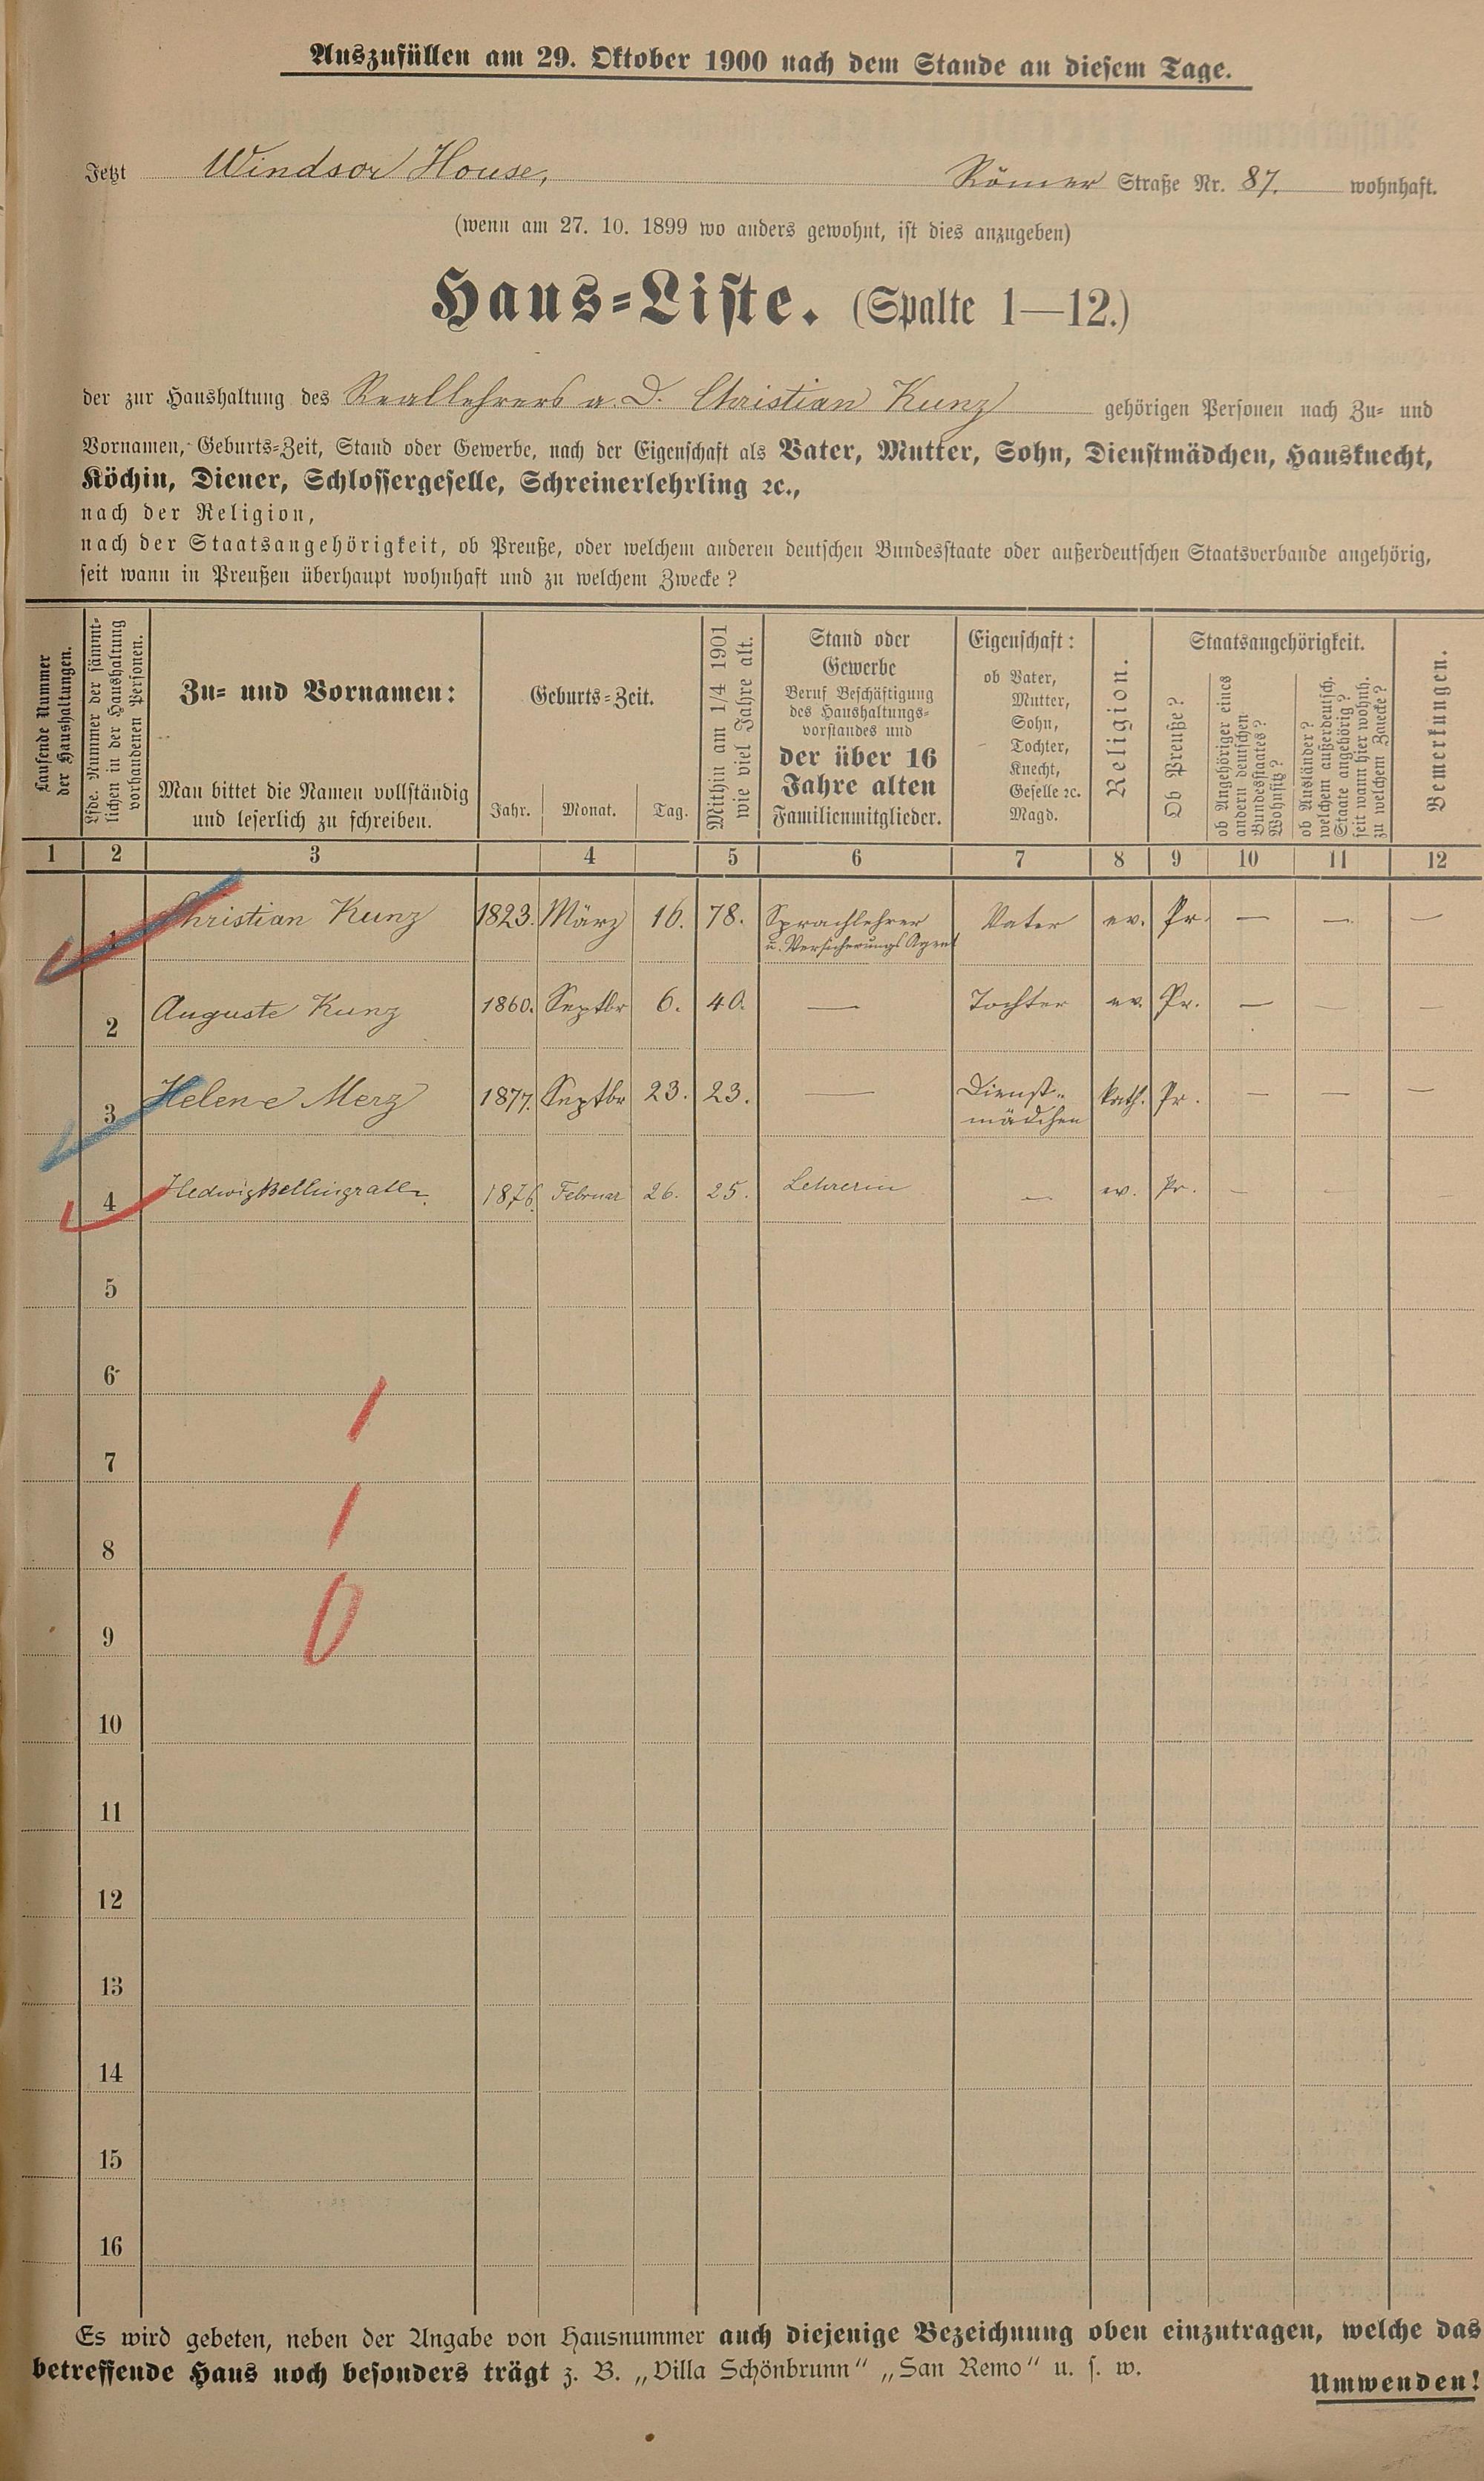 Auszufüllen am 29. Oktober 1900 nach dem Stande an diesem Tage.
Jetzt Windsor House, Römer Straße Nr. 87. wohnhaft.
(wenn am 27. 10. 1899 wo anders gewohnt, ist dies anzugeben)
Haus-Liste. (Spalte 1—12.)
der zur Haushaltung des Reallehrers a. D. Christian Kunz gehörigen Personen nach Zu- und
Vornamen, Geburts-Zeit, Stand oder Gewerbe, nach der Eigenschaft als Vater, Mutter, Sohn, Dienstmädchen, Hausknecht,
Köchin, Diener, Schlossergeselle, Schreinerlehrling ꝛc.,
nach der Religion,
nach der Staatsangehörigkeit, ob Preuße, oder welchem anderen deutschen Bundesstaate oder außerdeutschen Staatsverbande angehörig,
seit wann in Preußen überhaupt wohnhaft und zu welchem Zwecke?
Laufende Nummer
der Haushaltungen.
Lfde. Nummer der sämmt-
lichen in der Haushaltung
vorhandenen Personen.
Zu- und Vornamen:
Man bittet die Namen vollständig
und leserlich zu schreiben.
Geburts-Zeit.
Jahr. Monat. Tag.
Mithin am 1/4 1901
wie viel Jahre alt.
Stand oder
Gewerbe
Beruf Beschäftigung
des Haushaltungs-
vorstandes und
der über 16
Jahre alten
Familienmitglieder.
Eigenschaft:
ob Vater,
Mutter,
Sohn,
Tochter,
Knecht,
Geselle ꝛc.
Magd.
Religion.
Staatsangehörigkeit.
Ob Preuße?
ob Angehöriger eines
andern deutschen
Bundesstaates?
Wohnsitz?
ob Ausländer?
welchem außerdeutsch.
Staate angehörig?
seit wann hier wohnh.
zu welchem Zwecke?
Bemerkungen.
1 2 3 4 5 6 7 8 9 10 11 12
1 Christian Kunz 1823. März 16. 78. Sprachlehrer Vater ev. Pr. — — —
u. Versicherungs Agent
2 Auguste Kunz 1860. Septbr 6. 40. — Tochter ev. Pr. — — —
3 Helene Merz 1877. Septbr 23. 23. — Dienst- kath. Pr. — — —
mädchen
4 Hedwig Bellingrath 1876. Februar 26. 25. Lehrerin — ev. Pr. — — —
5
6
7
8
9
10
11
12
13
14
15
16
1
1
0
Es wird gebeten, neben der Angabe von Hausnummer auch diejenige Bezeichnung oben einzutragen, welche das
betreffende Haus noch besonders trägt z. B. „Villa Schönbrunn“ „San Remo“ u. s. w.
Umwenden!